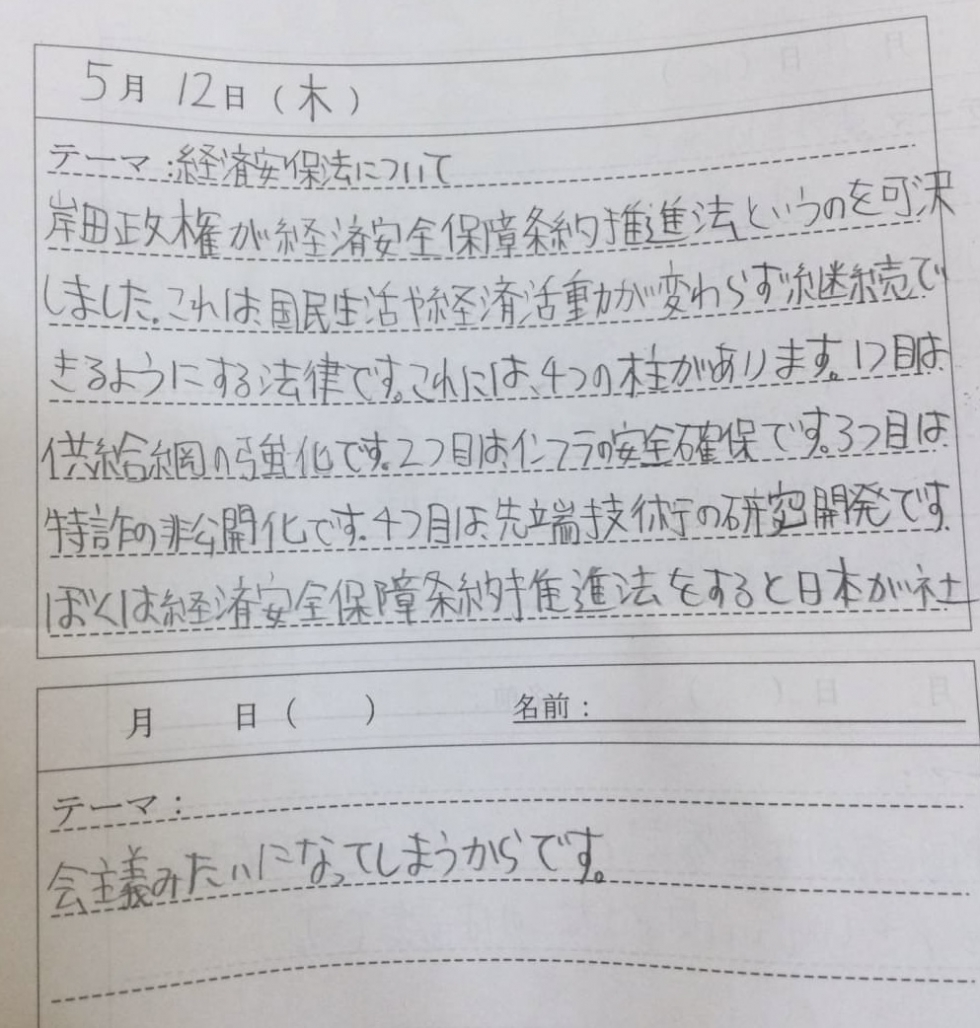 5月 12日（木）
テーマ：経済安保法について
岸田政権が経済安全保障条約推進法というのを可決
しました。これは、国民生活や経済活動が変わらず継続で
きるようにする法律です。これには、4つの柱があります。1つ目は
供給網の強化です。2つ目は、インフラの安全確保です。3つ目は
特許の非公開化です。4つ目は、先端技術の研究開発です。
ぼくは経済安全保障条約推進法をすると日本が社
月 日（ ） 名前：
テーマ：
会主義みたいになってしまうからです。